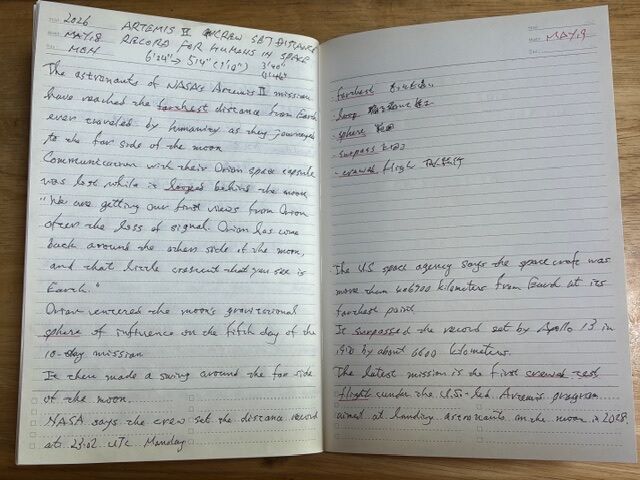 2026
MAY.18
MON
ARTEMIS II CREW SET DISTANCE
RECORD FOR HUMANS IN SPACE
6'24" → 5'14" (1'10") 3'40"
The astronauts of NASA's Artemis II mission
have reached the farthest distance from Earth
ever traveled by humanity as they journeyed
to the far side of the moon
Communication with their Orion space capsule
was lost while it looped behind the moon
"We are getting our first views from Orion
after the loss of signal. Orion has come
back around the other side of the moon,
and that little crescent that you see is
Earth."
Orion entered the moon's gravitational
sphere of influence on the fifth day of the
10-day mission
It then made a swing around the far side
of the moon.
NASA says the crew set the distance record
at 23:02 UTC Monday
MAY.19
farthest
loop
sphere 範囲
surpass 上回る
crewed flight
The U.S space agency says the space craft was
more than 406700 kilometers from Earth at its
farthest point
It surpassed the record set by Apollo 13 in
1970 by about 6600 kilometers.
The latest mission is the first crewed test
flight under the U.S.-led Artemis program
aimed at landing astronauts on the moon in 2028.